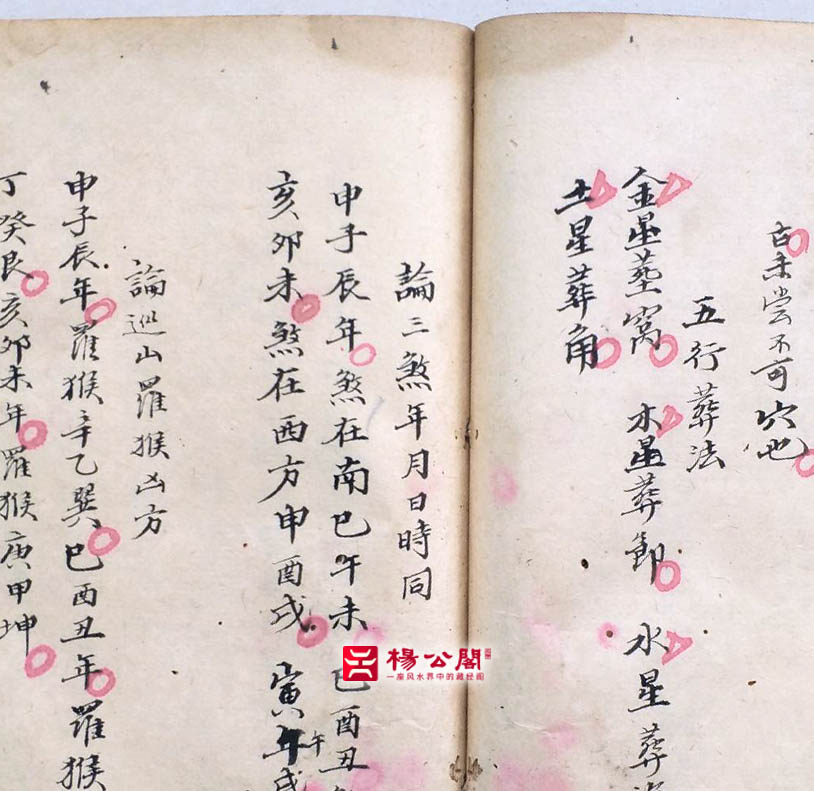 古未尝不可穴也
五行葬法
金星塟窩 木星葬節 水星葬
土星葬角
論三煞年月日時同
申子辰年煞在南巳午未 巳酉丑
亥卯未煞在西方申酉戌 寅年午戌
論巡山羅猴凶方
申子辰年羅猴辛乙巽巳酉丑年羅猴
丁癸艮亥卯未年羅猴庚甲坤
楊公閣
一座风水界中的藏经阁